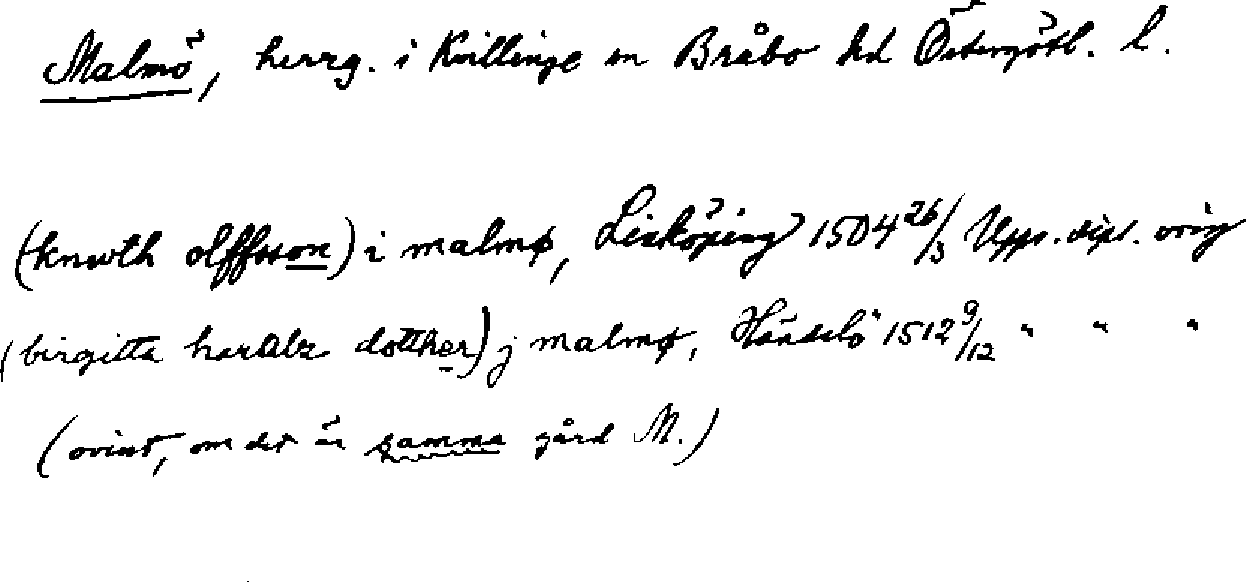 Malmö, herrg. i Kvillinge sn Bråbo hd Östergötl. l.
(knwth olffsson) i malmø, Linköping 1504 26/3 Upps. dipl. orig
(birgitta haralz dotther) j malmø, Händelö 1512 9/12 " " "
(ovisst, om det är samma gård M.)